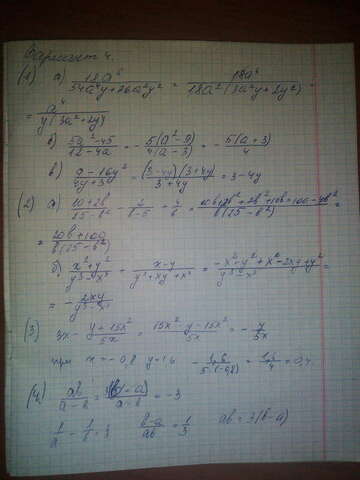 Вариант 4.
(1) а) 18a⁶ / 54a⁴y+36a²y² = 18a⁶ / 18a²(3a²y+2y²) =
= a⁴ / y(3a²+2y)
б) 5a²-45 / 12-4a = - 5(a²-9) / 4(a-3) = - 5(a+3) / 4
в) 9-16y² / 4y+3 = (3-4y)(3+4y) / 3+4y = 3-4y
(2) а)
= 20b+100 / b(25-b²)
б) x²+y² / y³-x³ + x-y / y²+xy+x² = -x²+y²+x²-2xy+y² / y³-x³ =
= - 2xy / y³-x³
(3) 3x - y+15x² / 5x = 15x²-y-15x² / 5x = - y / 5x
при x=-0,8 y=1,6 - 1,6 / 5·(-0,8) = 1,6 / 4 = 0,4.
(4) ab / a-b = 3(b-a) / a-b = -3
1/a - 1/b = 1/3 b-a / ab = 1/3 ab=3(b-a)